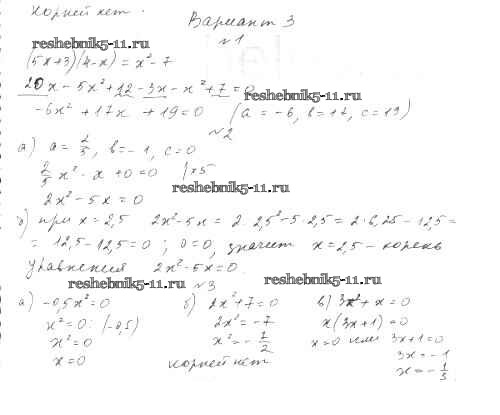 корней нет.
Вариант 3
№1
reshebnik5-11.ru
(5x+3)(4-x) = x²-7
20x - 5x² + 12 - 3x - x² + 7 = 0
reshebnik5-11.ru
-6x² + 17x + 19 = 0 (a = -6, b = 17, c = 19)
№2
а) a = 2/5, b = -1, c = 0
2/5 x² - x + 0 = 0 |×5
reshebnik5-11.ru
2x² - 5x = 0
б) при x = 2,5 2x² - 5x = 2·2,5² - 5·2,5 = 2·6,25 - 12,5 =
= 12,5 - 12,5 = 0; 0 = 0, значит x = 2,5 - корень
уравнения 2x² - 5x = 0.
reshebnik5-11.ru
reshebnik5-11.ru
№3
а) -0,5x² = 0
x² = 0 : (-0,5)
x² = 0
x = 0
б) 2x² + 7 = 0
2x² = -7
x² = -7/2
корней нет
в) 3x² + x = 0
x(3x+1) = 0
x = 0 или 3x+1 = 0
3x = -1
x = -1/3